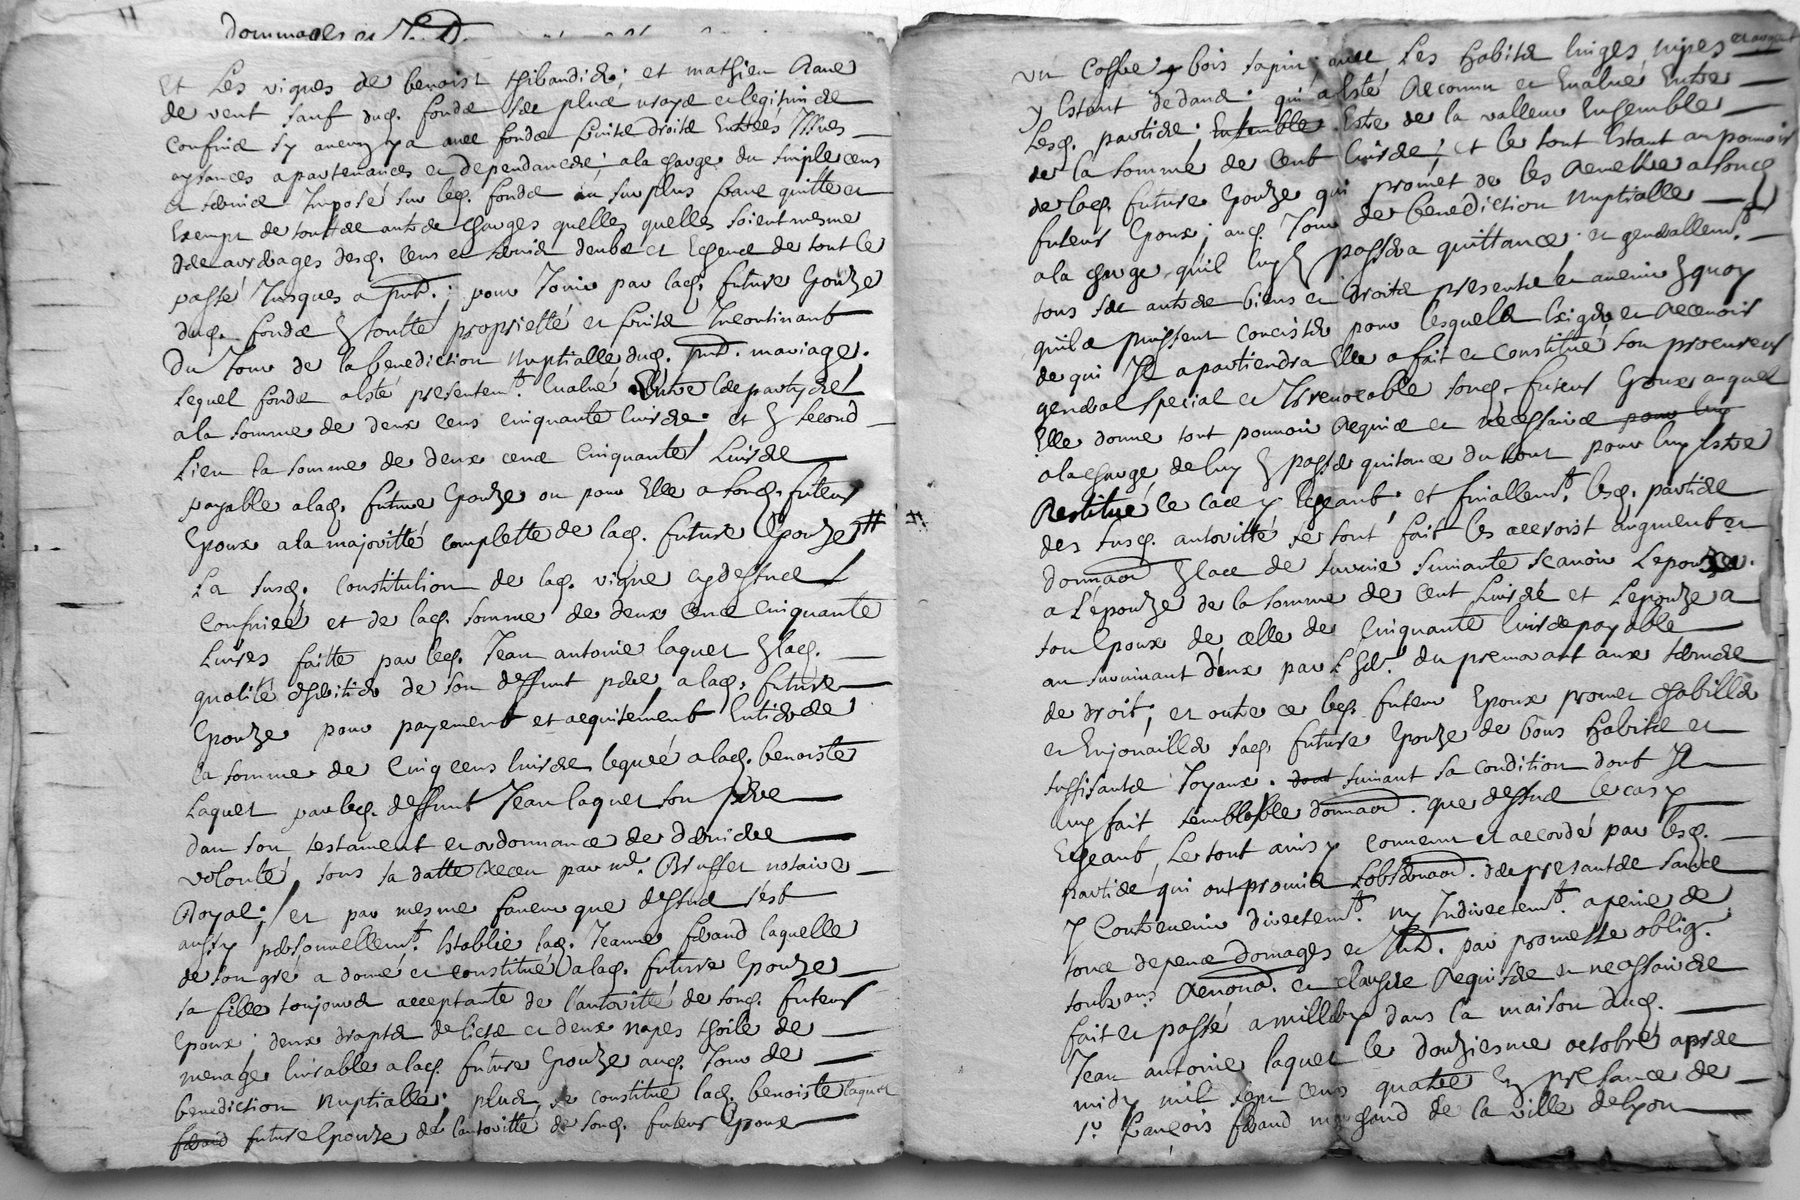 dommages et
Et les vignes de benoist thibaudier; et mathieu
de vent sauf dud. fonds ses plus vrays et legitimes
confins sy aucun y a avec fonds fruits droits Entrées Issues
aysances apartenances et dependances; a la charge du simple cens
et servis Imposé sur led. fonds au surplus franc quitte et
Exempt de touttes autres charges quelles quelles soient mesme
des arrerages desd. cens et servis deubs et Echeus de tout le
passé Jusques a; pour Jouir par lad. future Epouze
dud. fonds toutte proprietté et fruits Incontinant
du Jour de la benediction Nuptialle dud. mariage.
Lequel fonds a esté presentemt. Evalué Entre les partyes
a la somme de deux cens cinquante livres et second
Lieu la somme de deux cens Cinquante Livres
payable a lad. future Epouze ou pour Elle a sond. futeur
Epoux a la majoritté complette de lad. future Epouze #
La susd. constitution de lad. vigne cy dessus
Confinée et de lad. somme de deux cens cinquante
Livres faitte par led. Jean antoine laquet lad.
qualité d'heritier de son deffunt pere a lad. future
Epouze pour payement et acquitement Entier de
la somme de Cinq cens livres leguée a lad. benoiste
Laquet par led. deffunt Jean laquet son pere
dans son testament et ordonnance de derniere
volonté, sous sa datte Receu par me. notaire
Royal; et par mesme faveur que dessus s'est
aussy personnellemt. Establie lad. Jeanne feraud laquelle
de son gré a donné et constitué a lad. future Epouze
sa fille toujours acceptante de l'autorité de sond. futeur
Epoux; deux draps de lict et deux napes thoile de
menage livrable a lad. future Epouze aud. Jour de
benediction Nuptialle; plus se constitue lad. benoiste laquet
feraud future Epouze de l'autoritté de sond. futeur Epoux
un Coffre bois sapin, avec Les habits linges nipes et argent
y Estant dedans; qui a Esté Reconnu et Evalué Entre
Lesd. parties, Ensemble Estre de la valleur Ensemble
de la somme de Cent livres; et le tout Estant au pouvoir
de lad. future Epouze qui promet de les Remettre a sond.
futeur Epoux; aud. Jour de benediction Nuptialle
a la charge qu'il luy passera quittance et generallemt.
tous ses autres biens et droits presents et avenir quoy
qu'ils puissent concister pour lesquels Exiger et Recevoir
de qui Il apartiendra Elle a fait et constitué son procureur
general special et Irrevocable sond. futeur Epoux auquel
Elle donne tout pouvoir Requis et necessaire pour luy
a la charge de luy passer quitance du tout pour luy estre
Restitué le cas y Echeant; et finallemt. lesd. parties
des susd. autoritté se sont fait les accroist augment et
donnaon. de survie suivante scavoir L'epoux
a L'epouze de la somme de Cent Livres et L'epouze a
son Epoux de celle de Cinquante livres payable
au survivant d'eux par du premourant aux termes
de droit; et outre ce led. futeur Epoux promet d'habiller
et Enjouailler sad. future Epouze de bons habits et
suffisants Joyaux. dont suivant sa condition dont Il
luy fait semblable donnaon. que dessus le cas y
Echeant, Le tout ainsy convenu et accordé par lesd.
parties qui ont promis L'observaon. des presantes sans
y Contrevenir directemt. ny Indirectemt. a peine de
tous depens domages et par promesse oblig.
Renond. et clauses Requises et necessaires
fait et passé a millery dans la maison dud.
Jean antoine laquet le douziesme octobre apres
midy mil sept cens quatre presance de
sr. françois feraud marchand de la ville de lyon